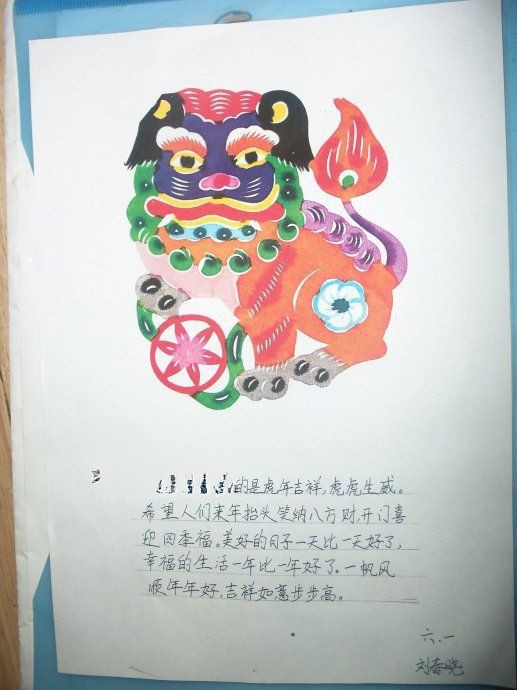 的是虎年吉祥,虎虎生威。
希望人们来年抬头笑纳八方财,开门喜
迎四季福。美好的日子一天比一天好了,
幸福的生活一年比一年好了。一帆风
顺年年好,吉祥如意步步高。
六.一
刘春晓